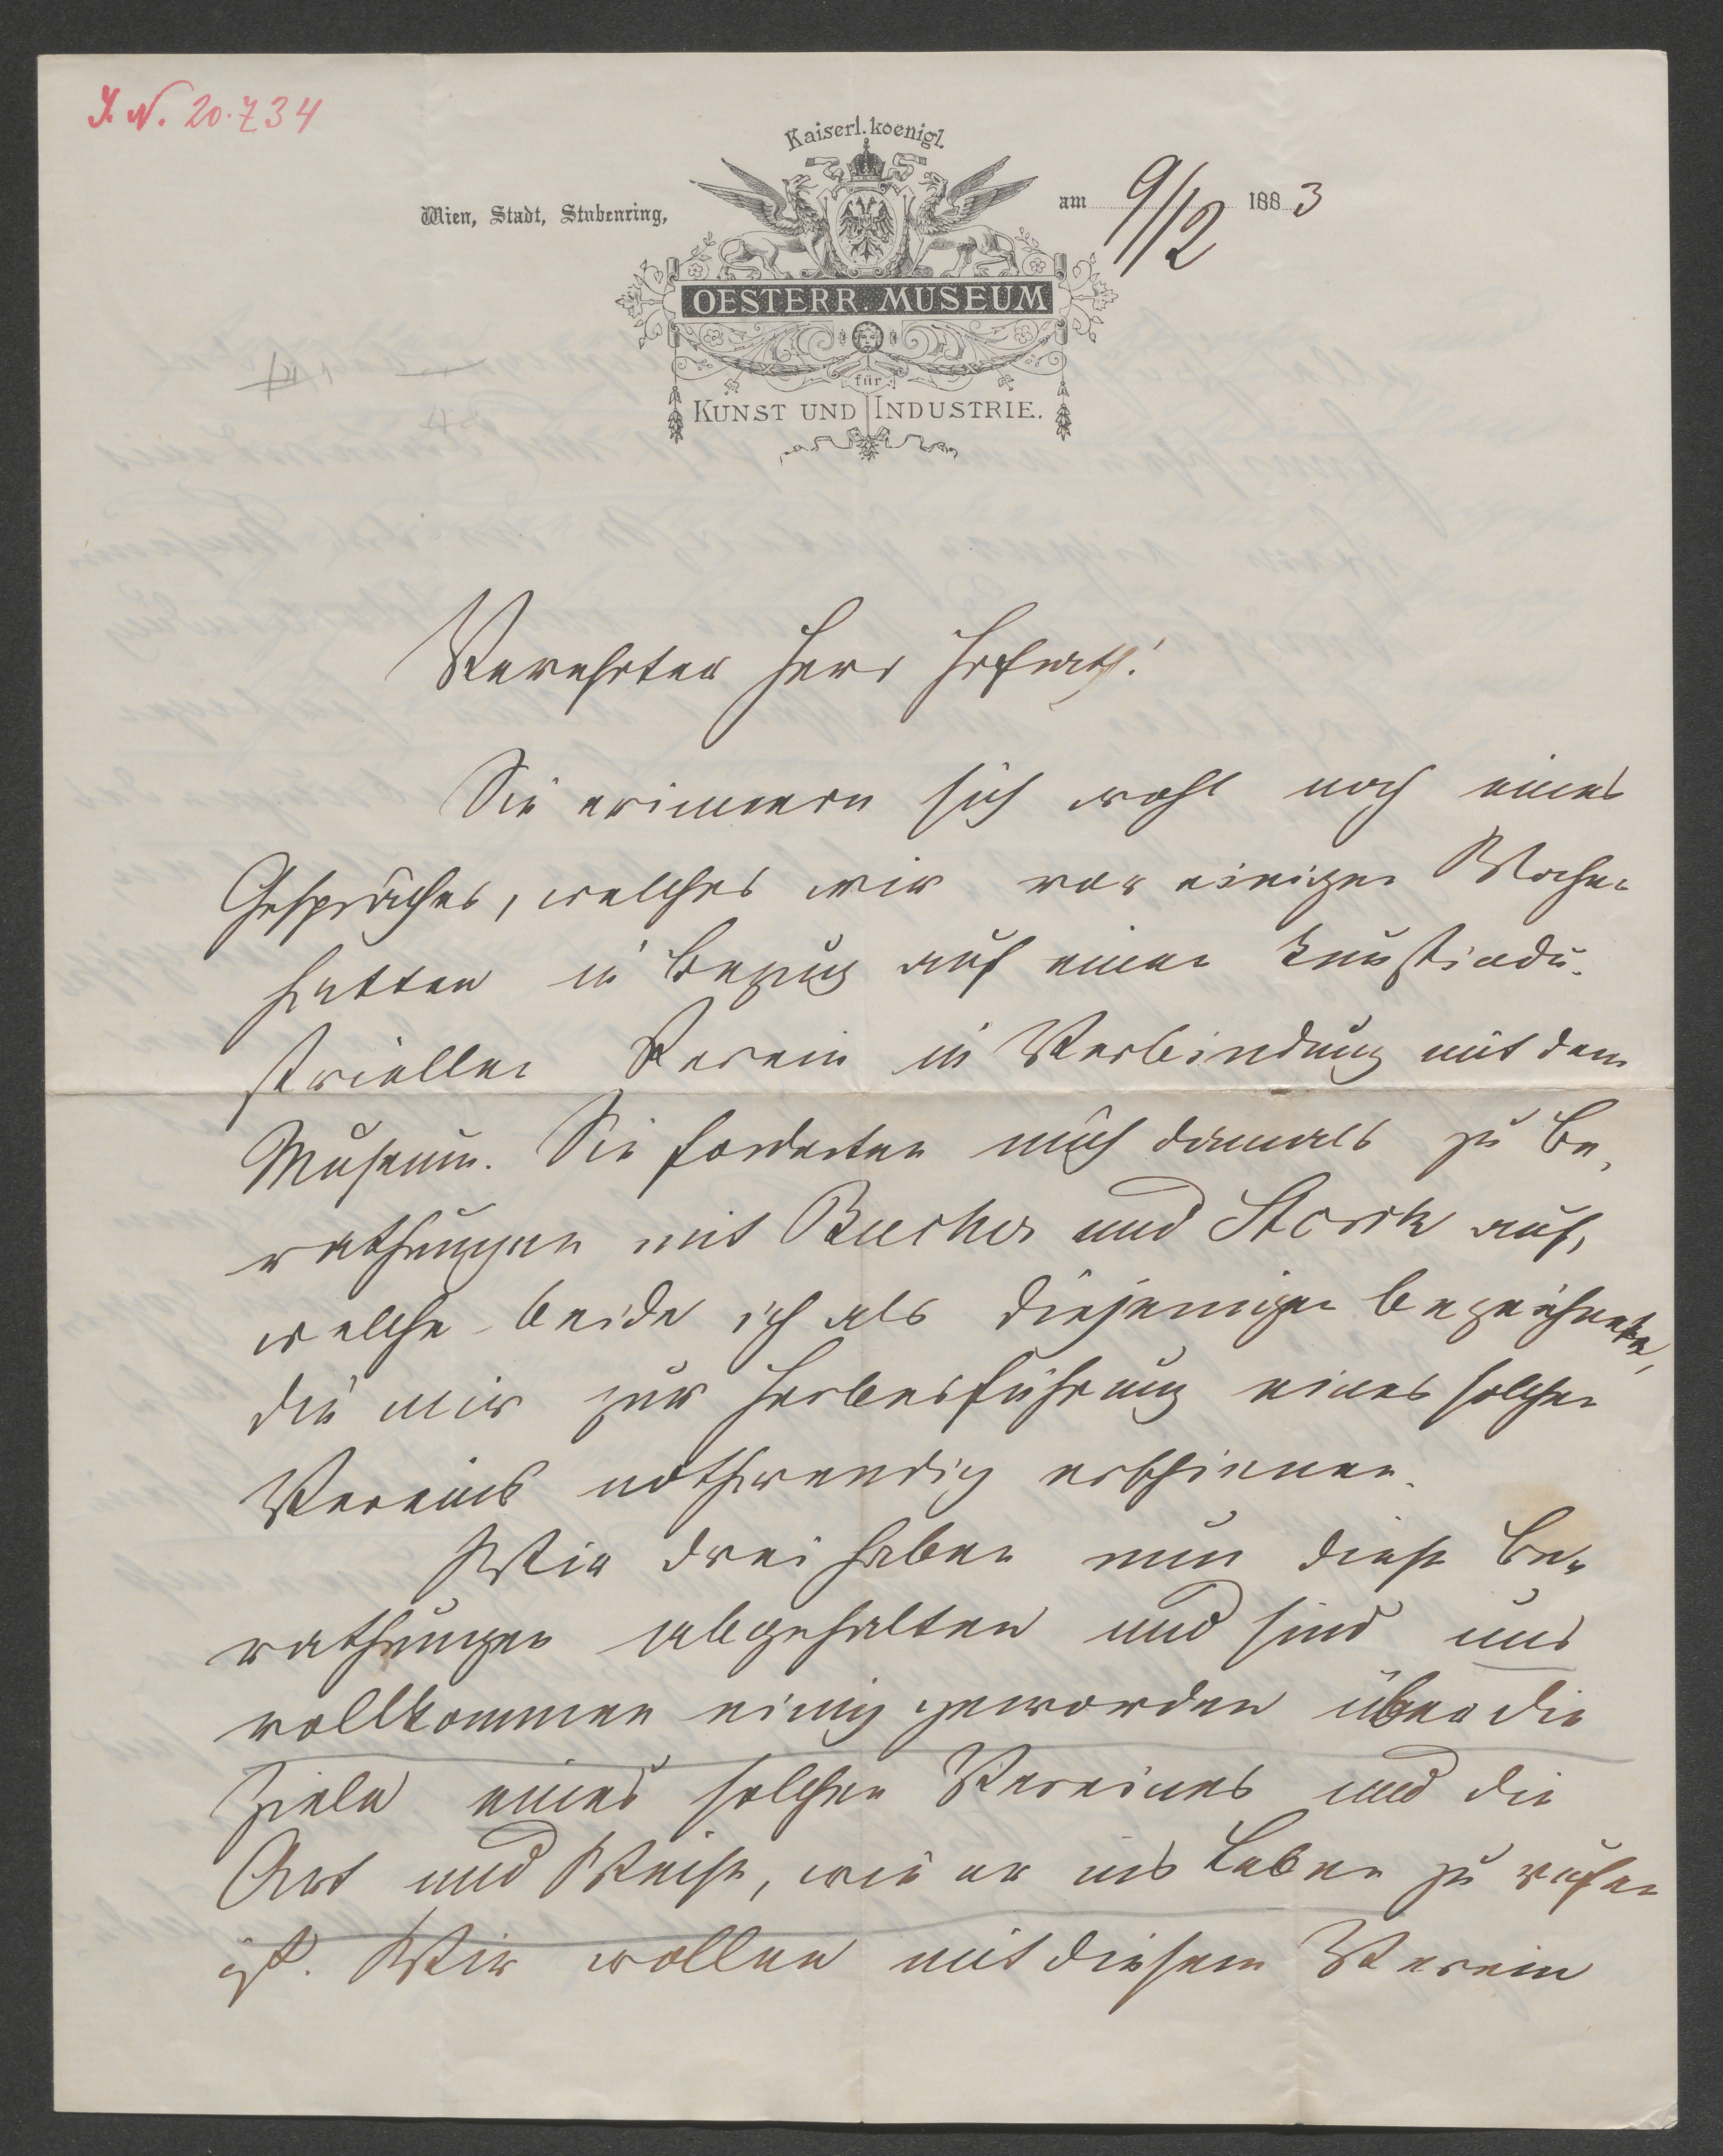 J. N. 20.734
Kaiserl. koenigl.
Wien, Stadt, Stubenring,
am 9/12 1883
OESTERR. MUSEUM
für
KUNST UND INDUSTRIE.
Verehrter Herr Hofrath!
Sie erinnern sich wohl noch eines
Gespräches, welches wir vor einigen Wochen
hatten in Bezug auf einen kunstindu-
striellen Verein in Verbindung mit dem
Museum. Sie forderten mich damals zu Be-
rathungen mit Bucher und Storck auf,
welche beide ich als diejenigen bezeichnete,
die mir zur Herbeiführung eines solchen
Vereins nothwendig erschienen.
Wir drei haben nun diese Be-
rathungen abgehalten und sind uns
vollkommen einig geworden über die
Ziele eines solchen Vereines und die
Art und Weise, wie er ins Leben zu rufen
ist. Wir wollen mit diesem Verein